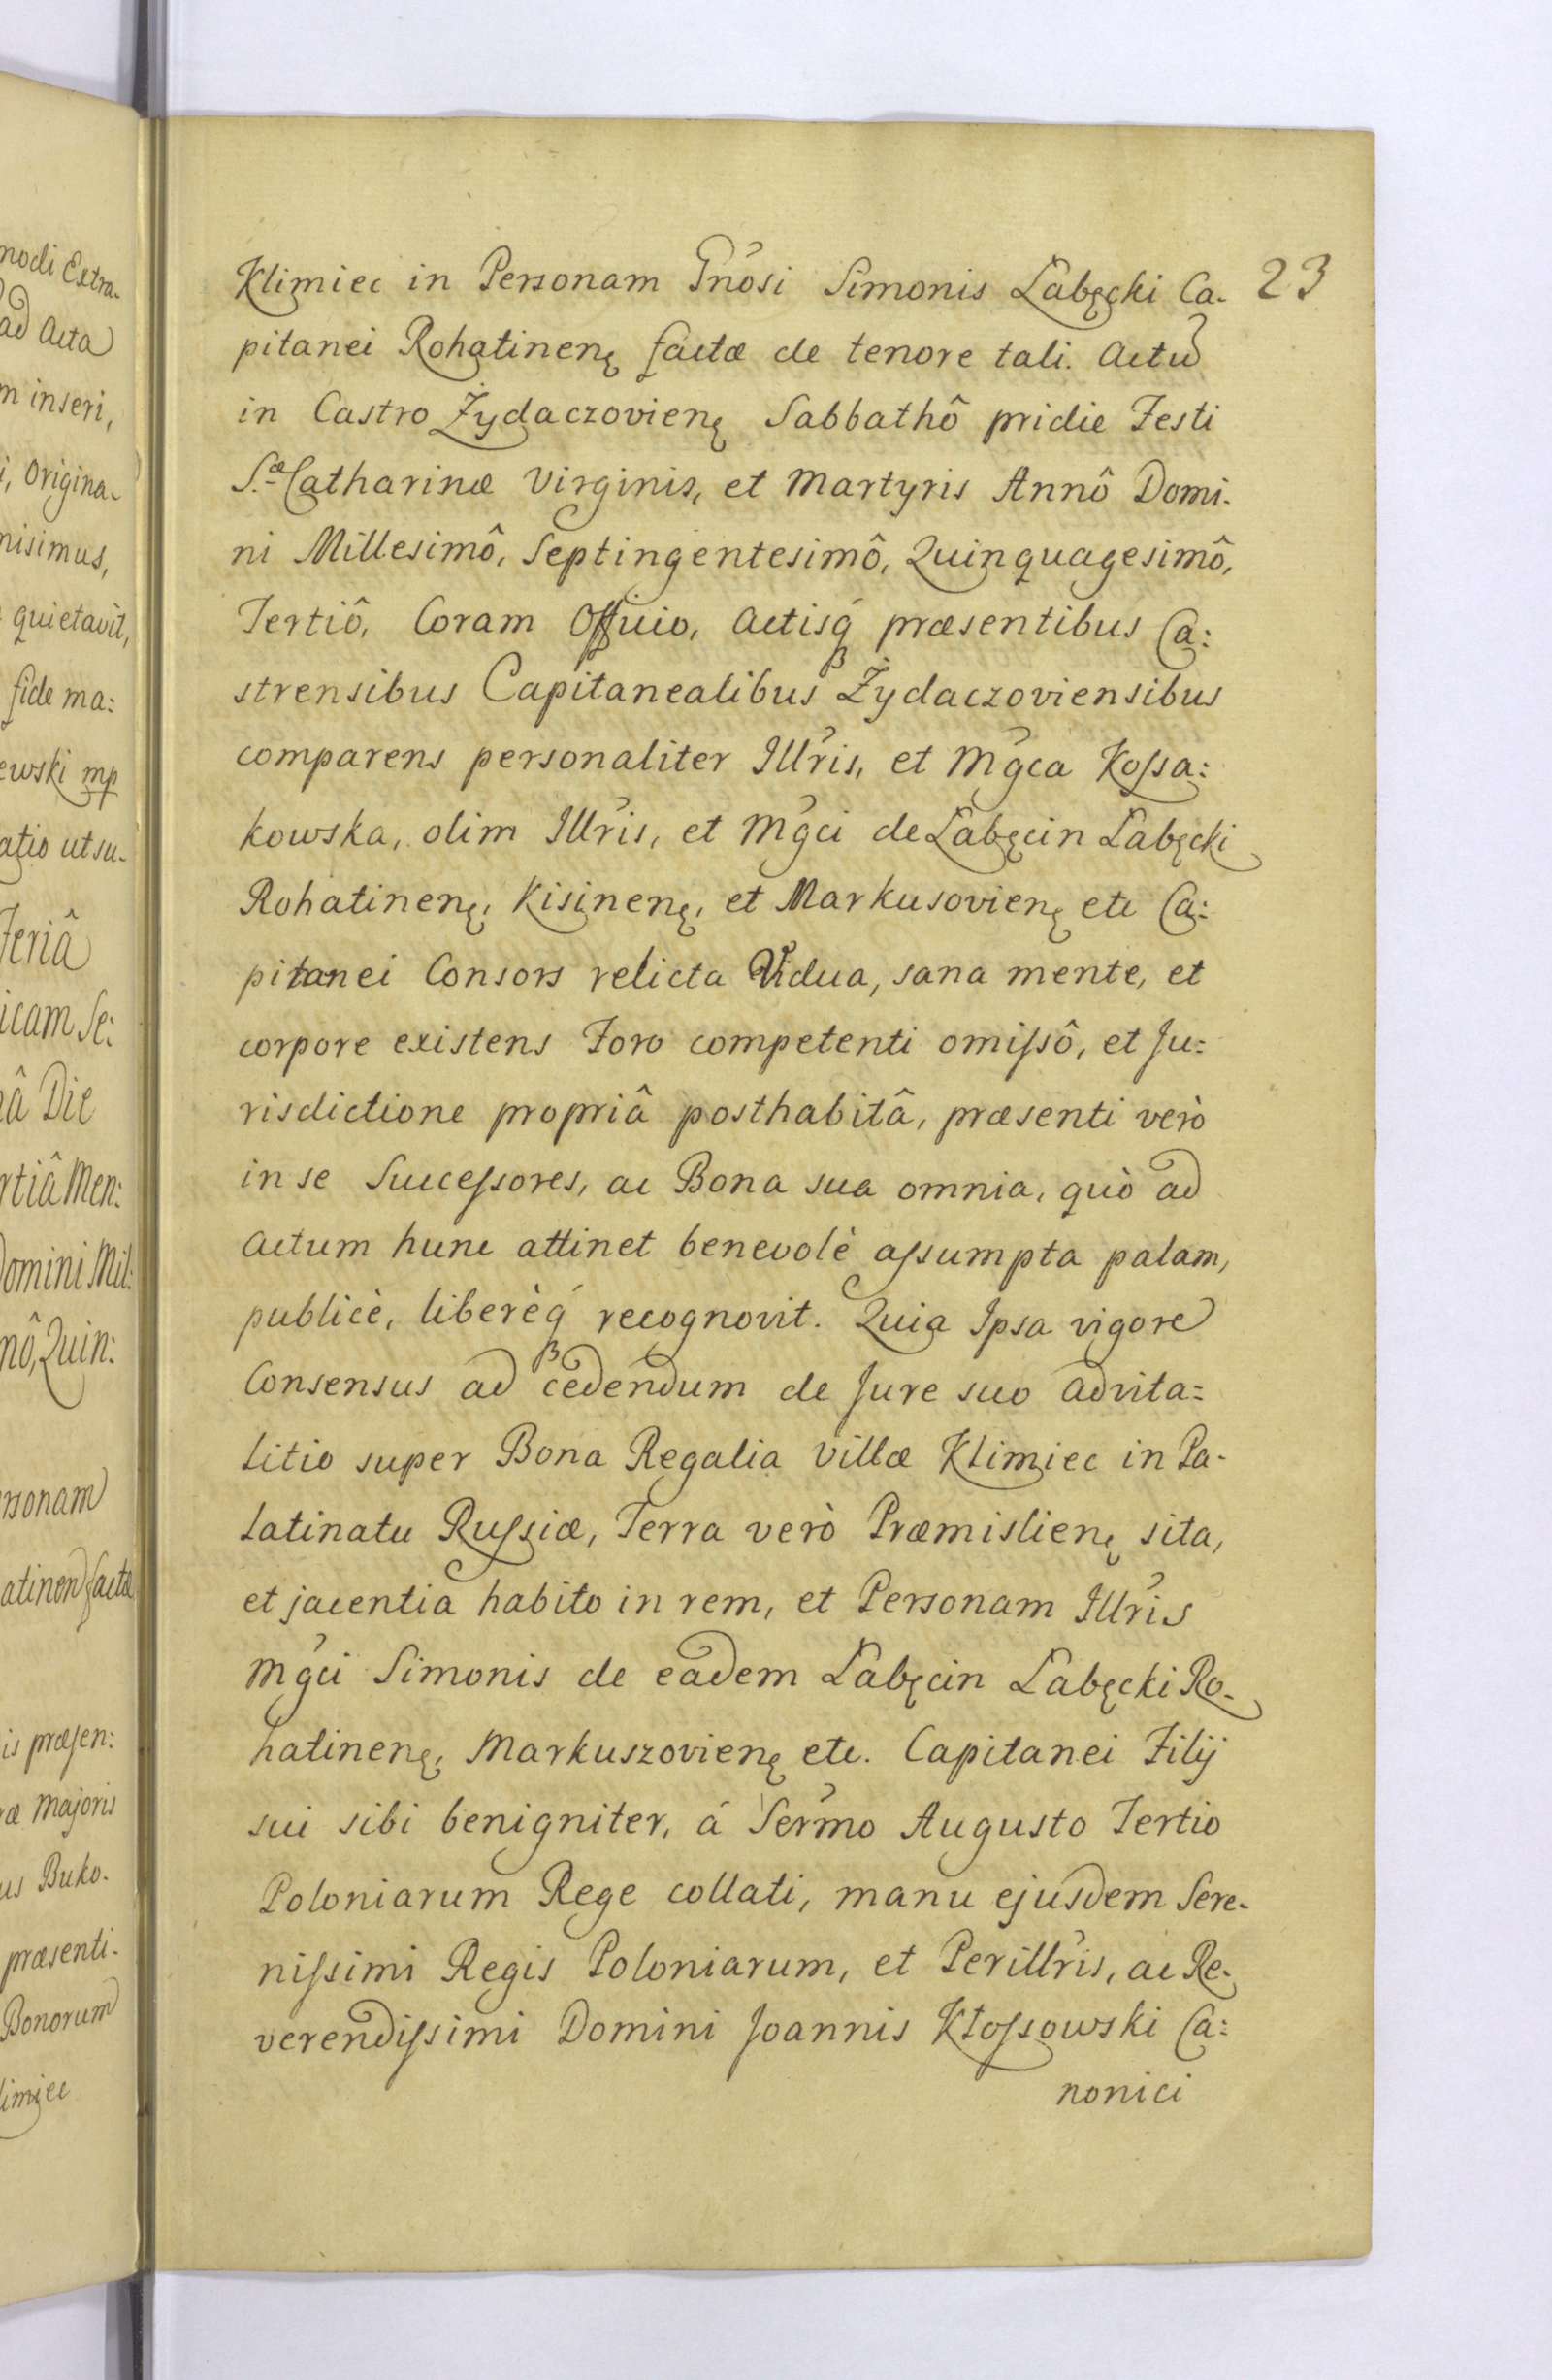 Klimiec in Personam Gnôsi Simonis Łabęcki Ca- 23
pitanei Rohatinenę factæ de tenore tali. Actũ
in Castro Żydaczovienę Sabbathô pridie Festi
S.æ Catharinæ Virginis, et Martyris Annô Domi-
ni Millesimô, Septingentesimô, Quinquagesimô,
Tertiô, Coram Officio, Actisq́ꝫ præsentibus Ca:
strensibus Capitanealibus Żydaczoviensibus
comparens personaliter Illris, et Mgca Koſsa:
kowska, olim Illris, et Mgci de Łabęcin Łabęcki
Rohatinenę, Kisinenę, et Markusovienę etc Ca:
pitanei Consors relicta Vidua, sana mente, et
corpore existens Foro competenti omiſsô, et Ju:
risdictione propriâ posthabitâ, præsenti verò
in se Succeſsores, ac Bona sua omnia, quò ad
Actum hunc attinet benevolè aſsumpta palam,
publicè, liberèq́ꝫ recognovit. Quia Ipsa vigore
Consensus ad cedendum de Jure suo Advita:
litio super Bona Regalia Villæ Klimiec in Pa-
latinatu Ruſsiæ, Terra verò Præmislienę sita,
et jacentia habito in rem, et Personam Illris
Mgci Simonis de eadem Łabęcin Łabęcki Ro-
hatinenę, Markuszovienę etc. Capitanei Filij
sui sibi benigniter, á Sermo Augusto Tertio
Poloniarum Rege collati, manu ejusdem Sere-
niſsimi Regis Poloniarum, et Perillris, ac Re-
verendiſsimi Domini Joannis Kłoſsowski Ca:
nonici